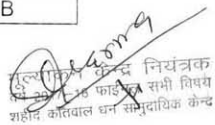 B
मूल्यांकन केन्द्र नियंत्रक
फाईनल सभी विषय
शहीद कोतवाल धन सामुदायिक केन्द्र